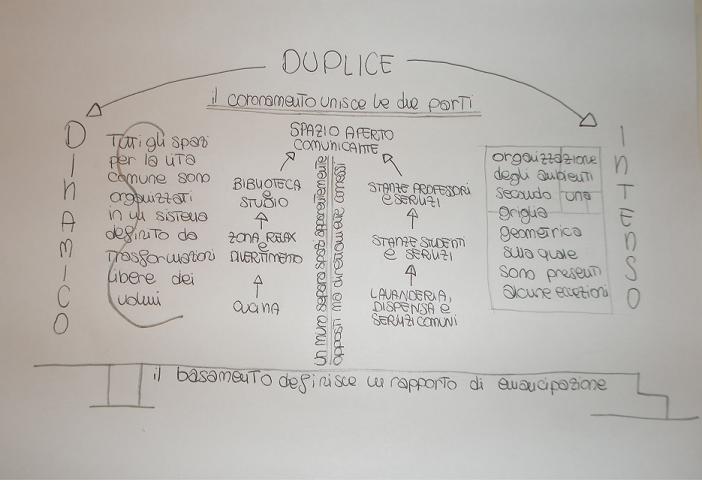 DUPLICE
il coronamento unisce le due parti
DINAMICO
Tutti gli spazi
per la vita
comune sono
organizzati
in un sistema
definito da
trasformazioni
libere dei
volumi
SPAZIO APERTO
COMUNICANTE
BIBLIOTECA
e
STUDIO
ZONA RELAX
e
DIVERTIMENTO
CUCINA
STANZE PROFESSORI
e SERVIZI
STANZE STUDENTI
e SERVIZI
LAVANDERIA,
DISPENSA e
SERVIZI COMUNI
INTENSO
organizzazione
degli ambienti
secondo una
griglia
geometrica
sulla quale
sono presenti
alcune eccezioni
il basamento definisce un rapporto di emancipazione